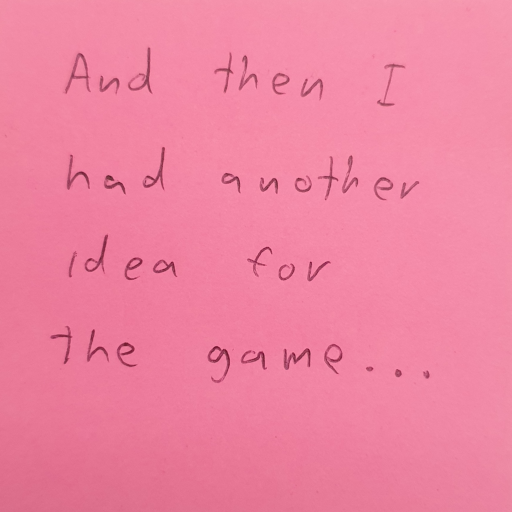 And then I
had another
idea for
the game...